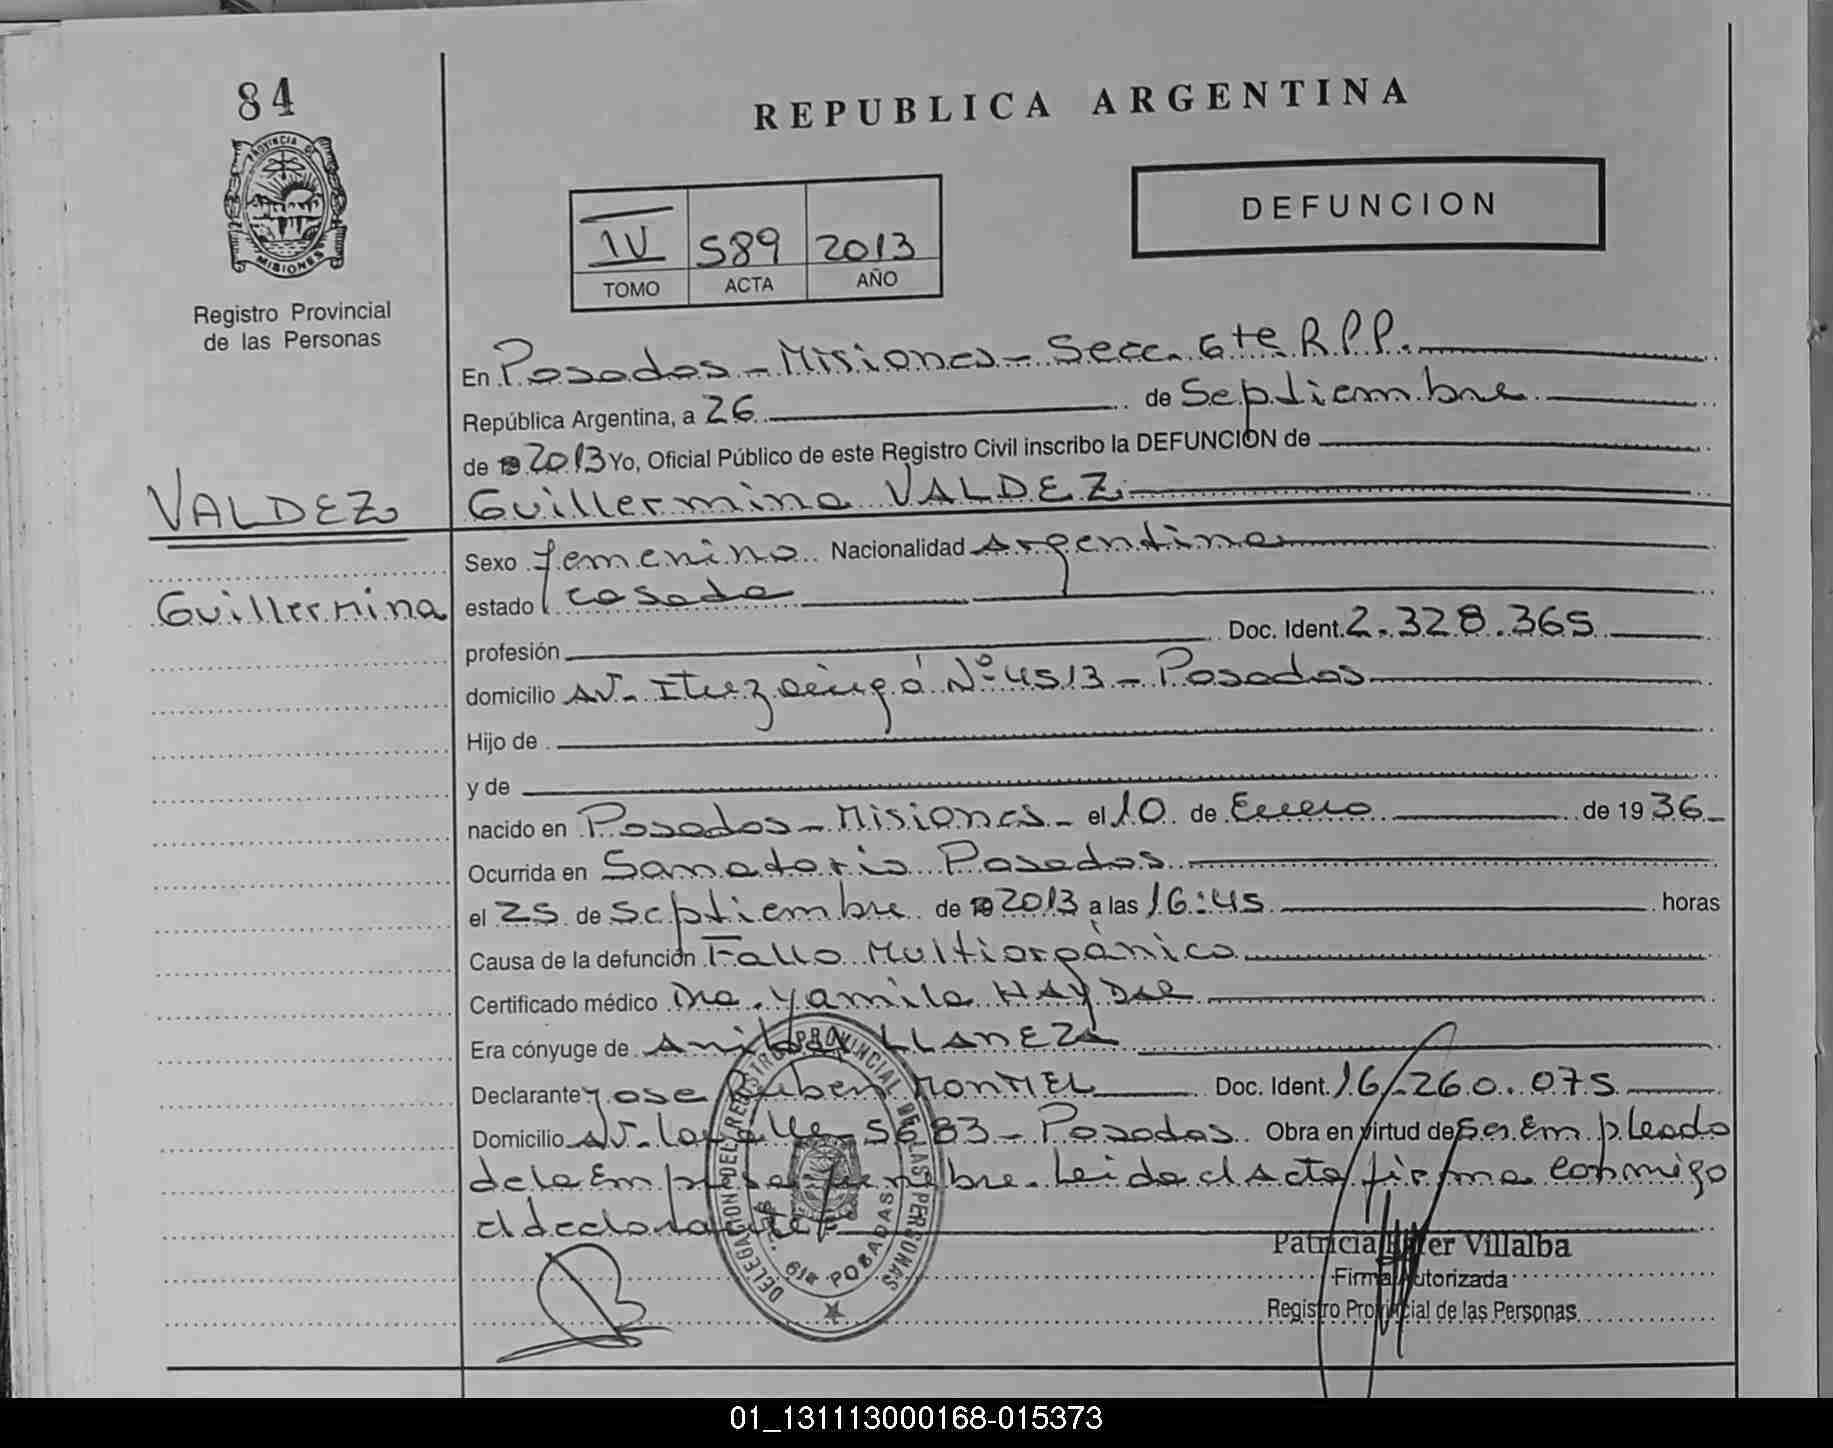 84
REPUBLICA ARGENTINA
PROVINCIA DE
MISIONES
Registro Provincial
de las Personas
IV 589 2013
TOMO ACTA AÑO
DEFUNCION
En Posadas - Misiones - Secc. 6te R.P.P.
República Argentina, a 26 de Septiembre
de 19 2013 Yo, Oficial Público de este Registro Civil inscribo la DEFUNCION de
VALDEZ
Guillermina VALDEZ
Sexo femenino Nacionalidad Argentina
Guillermina
estado casada
profesión Doc. Ident. 2.328.365
domicilio AV. Ituzaingó Nº 4513 - Posadas
Hijo de
y de
nacido en Posadas - Misiones - el 10 de Enero de 1936
Ocurrida en Sanatorio Posadas
el 25 de Septiembre de 19 2013 a las 16:45 horas
Causa de la defunción Fallo Multiorgánico
Certificado médico Dra. Yamila HAYDAR
Era cónyuge de Anibal LLANEZA
Declarante Jose Ruben MONTIEL Doc. Ident. 16.260.075
Domicilio AV. Lavalle 5683 - Posadas Obra en virtud de Ser Empleado
de la Empresa funebre. Leida el Acta firma conmigo
el declarante
DELEGACION DEL REGISTRO PROVINCIAL DE LAS PERSONAS
SEC. 6ta POSADAS
Patricia Villalba
Firma Autorizada
Registro Provincial de las Personas
01_131113000168-015373